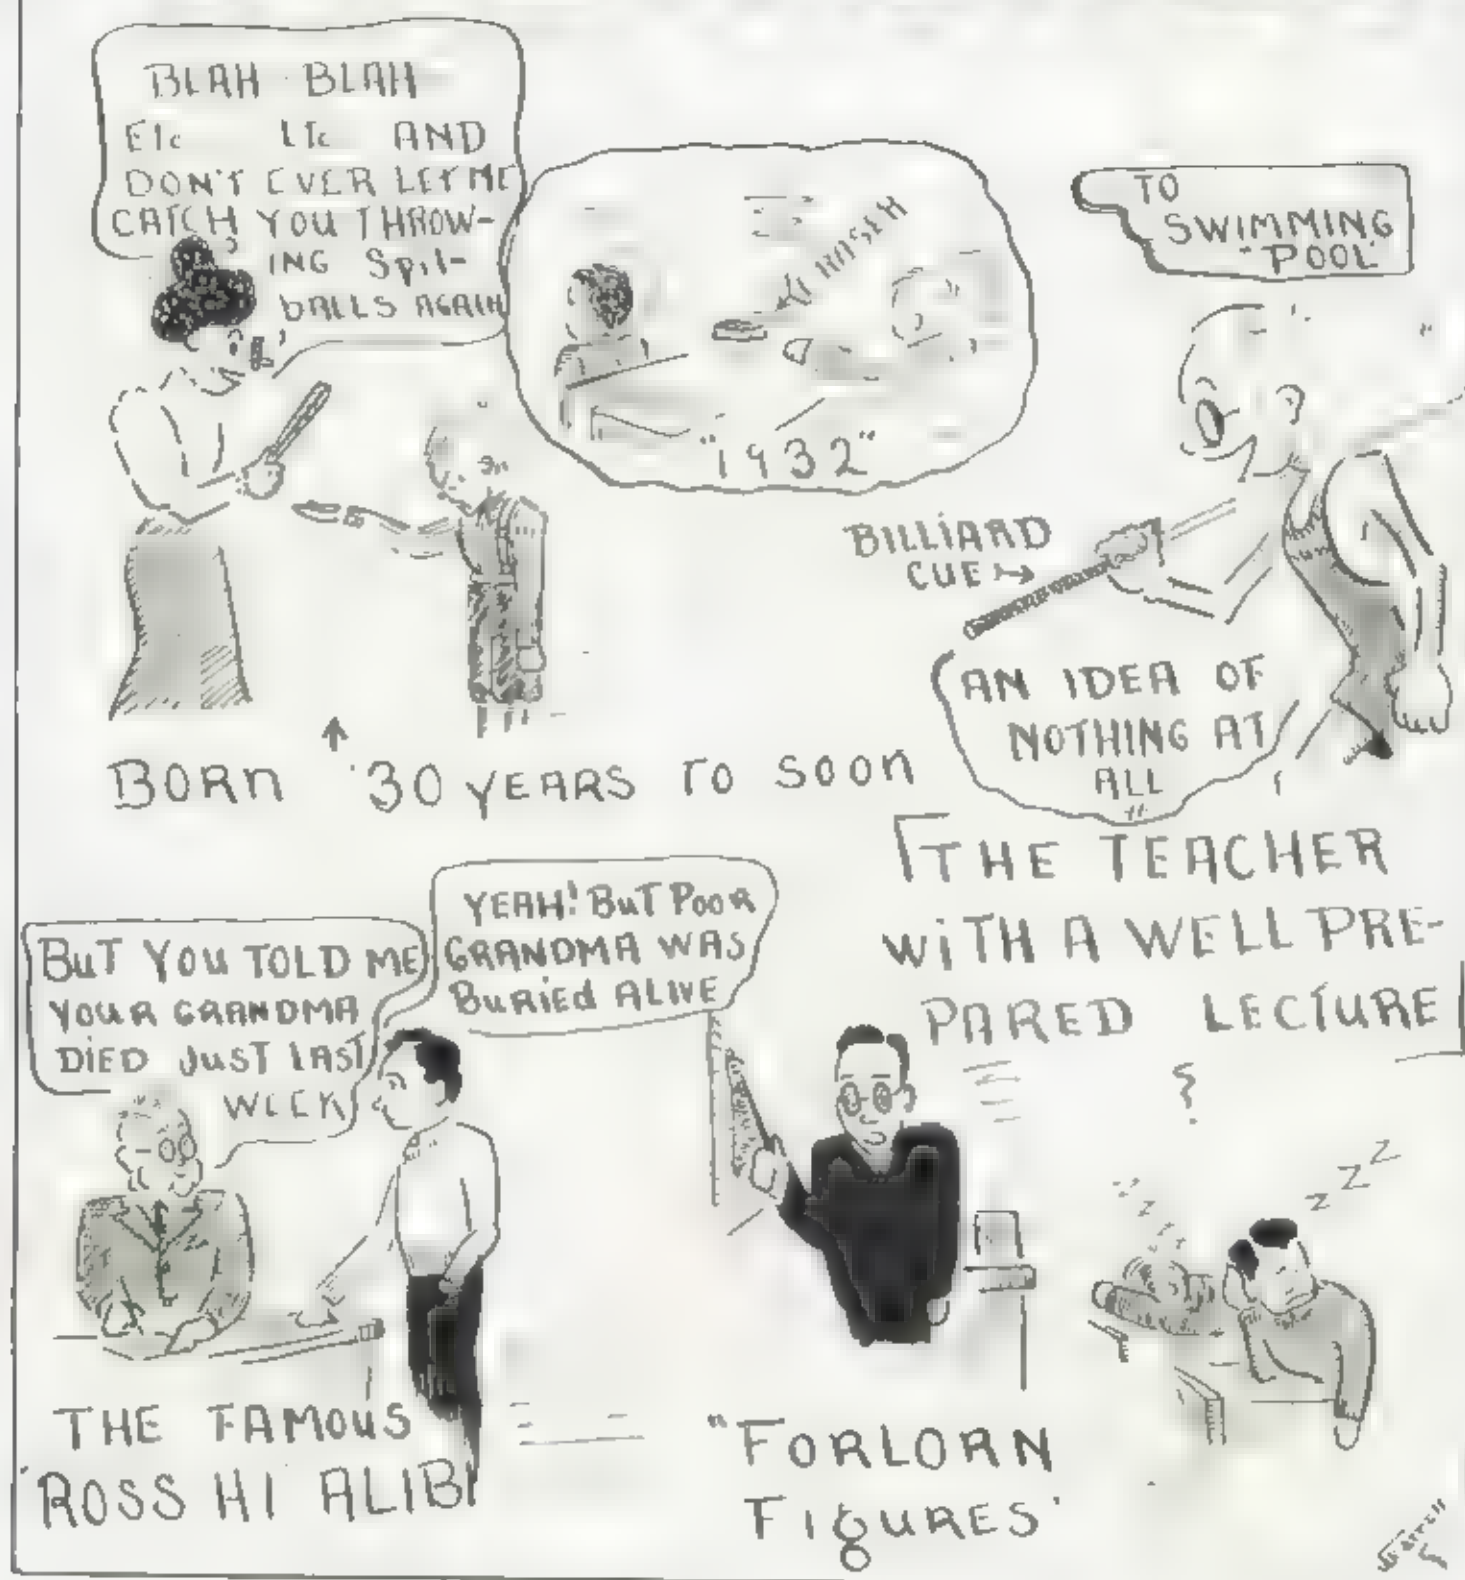 BLAH BLAH
Etc Etc AND
DON'T EVER LET ME
CATCH YOU THROW-
ING Spit-
bALLS AGAIN
ERASER
"1932"
TO
SWIMMING
"POOL"
BILLIARD
CUE
AN IDEA OF
NOTHING AT
ALL
BORn 30 YEARS TO SOOn
THE TEACHER
WiTH A WELL PRE-
PARED LECTURE
BuT YOU TOLD ME
YOUR GRANDMA
DiED JuST LAST
WEEK
YEAH! BuT POOR
GRANDMA WAS
BuRiEd ALIVE
?
Z Z Z
Z Z Z
THE FAMOuS
'ROSS HI ALIBI
"FORLORN
FIGURES'